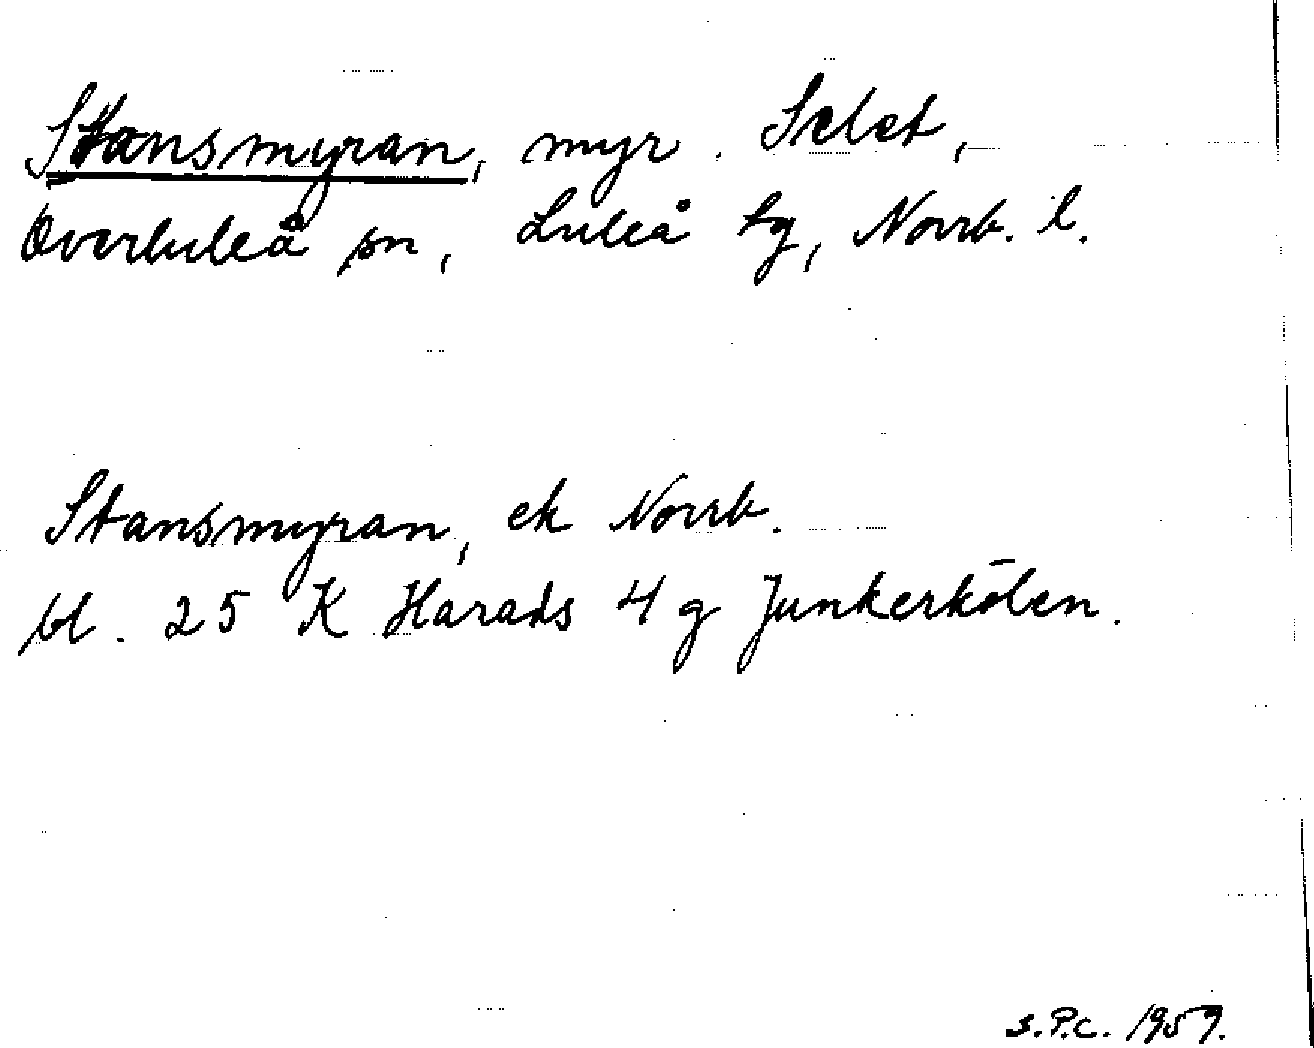 Stansmyran, myr. Selet,
Överluleå sn, Luleå tg, Norrb. l.
Stansmyran, ek Norrb.
bl. 25 K Harads 4 g Junkerkölen.
S.P.C. 1959.